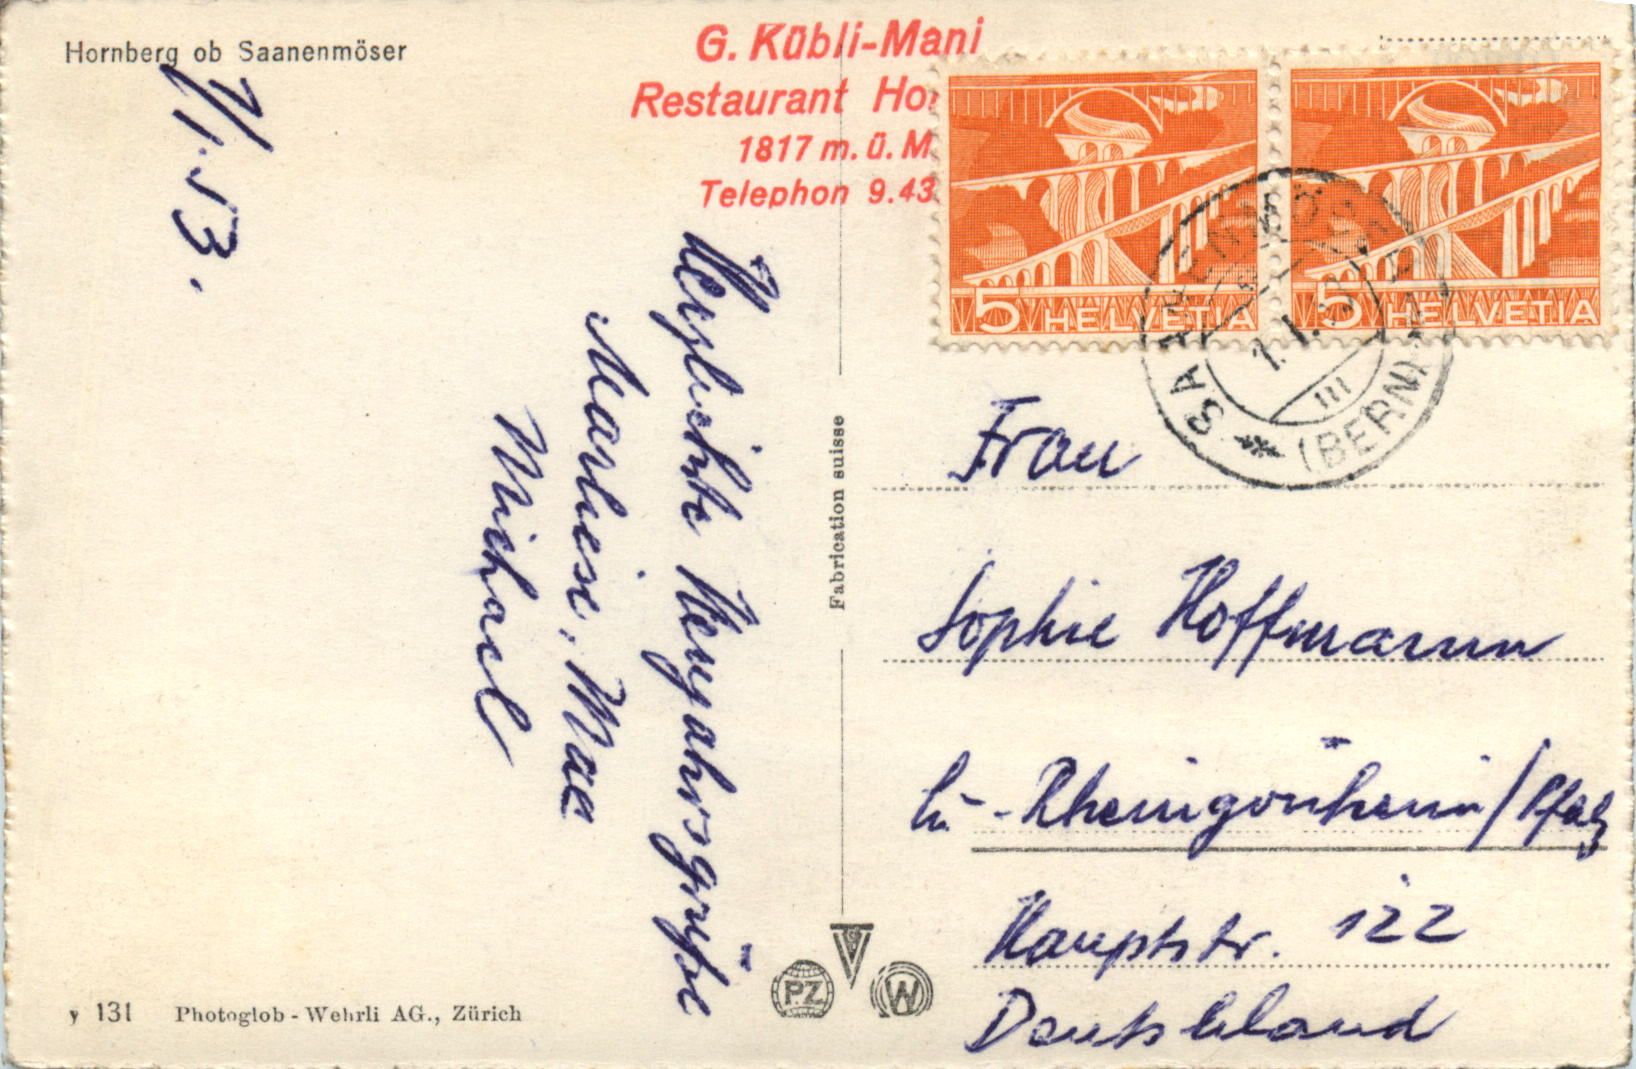 Hornberg ob Saanenmöser
1/1.53.
G. Kübli-Mani
Restaurant Hor
1817 m. ü. M
Telephon 9.43
Herzlichste Neujahrsgrüße
Marliese, Max
Michael
Fabrication suisse
5 HELVETIA
5 HELVETIA
SAANENMÖSER
1. I. 53
III
(BERN)
Frau
Sophie Hoffmann
Lu-Rheingönheim/Pfalz
Hauptstr. 122
Deutschland
131 Photoglob-Wehrli AG., Zürich
PZ
G
W